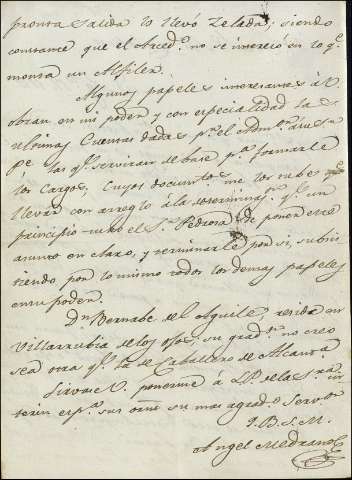 pronta salida lo llevó Zelada; siendo
constante que el Arced.º no se interesó en lo q.e
monta un Alfiler.
Algunos papeles interesantes á V.
obran en mi poder y con especialidad las
ultimas Cuentas dadas p.r el Adm.or á su
P.e las q.e serviran de base p.a formarle
los Cargos; Cuyos docum.tos me los
llevar con arreglo á la determinas.n q.e en
principio tubo el S.r Pedrosa de poner este
asunto en claro, y terminarle por si, subsis
tiendo por lo mismo todos los demas papeles
en su poder.
D.n Bernabe del Aguila, reside en
Villarrubia de los ojos, su grad.n no creo
sea otra q.e la de Caballero de Alcant.a
Sirvase V. ponerme á L.P. de la S.ra in
terin esp.a sus orns su mas agrad.o Serv.or
Q.B.S.M.
Angel Medrano